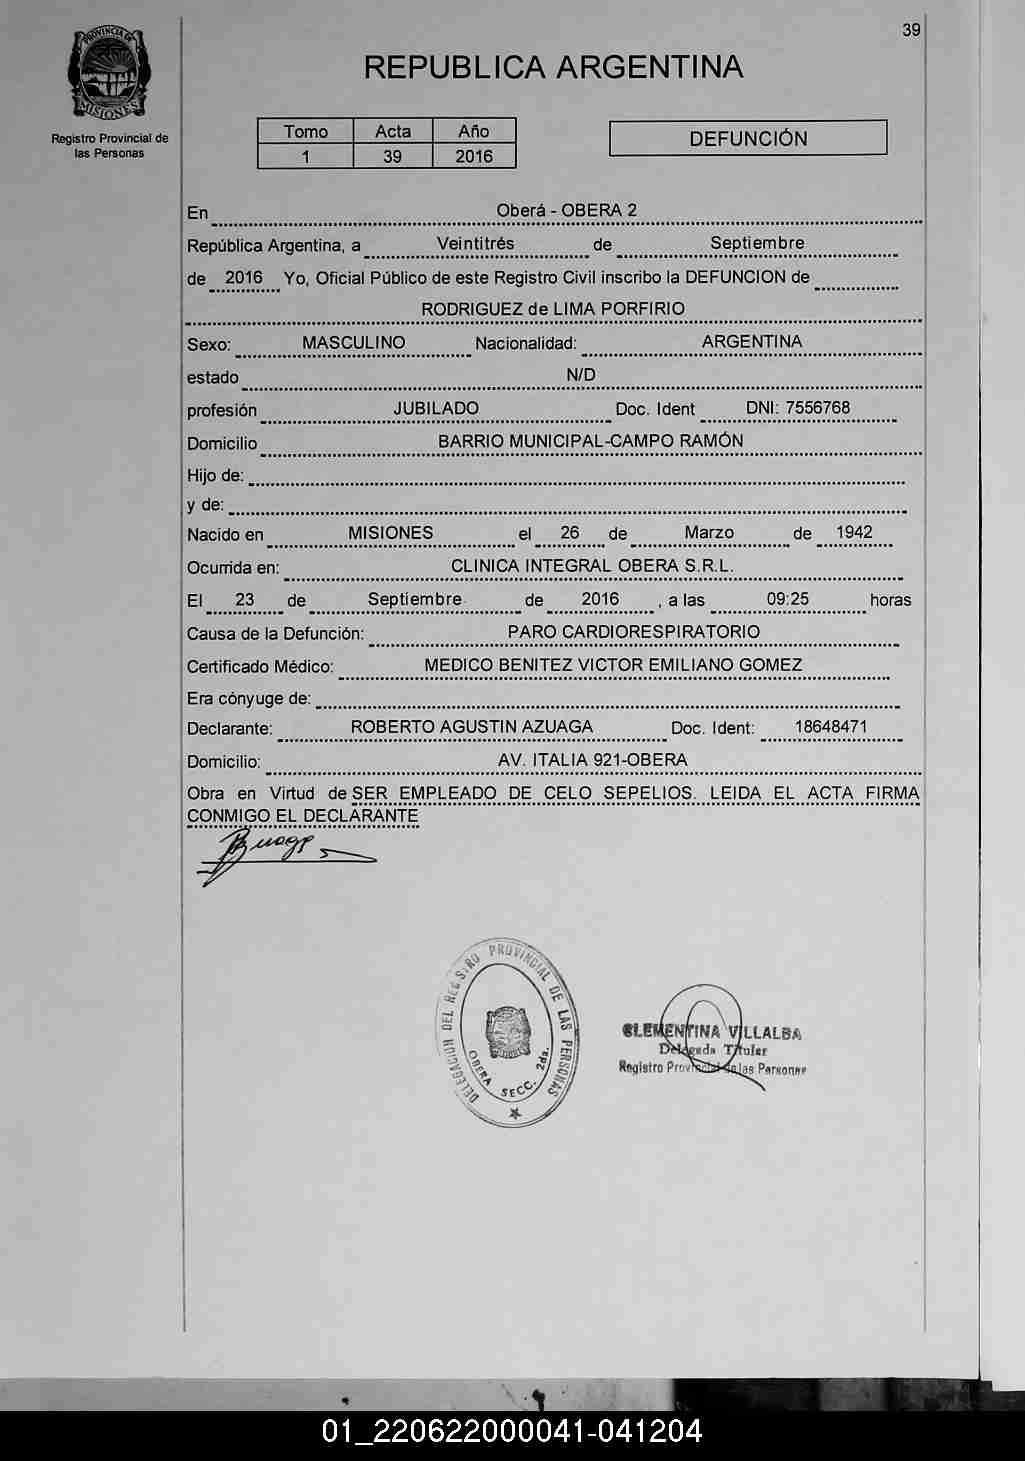 39
PROVINCIA DE
MISIONES
Registro Provincial de
las Personas
REPUBLICA ARGENTINA
Tomo Acta Año
1 39 2016
DEFUNCIÓN
En Oberá - OBERA 2
República Argentina, a Veintitrés de Septiembre
de 2016 Yo, Oficial Público de este Registro Civil inscribo la DEFUNCION de
RODRIGUEZ de LIMA PORFIRIO
Sexo: MASCULINO Nacionalidad: ARGENTINA
estado N/D
profesión JUBILADO Doc. Ident DNI: 7556768
Domicilio BARRIO MUNICIPAL-CAMPO RAMÓN
Hijo de:
y de:
Nacido en MISIONES el 26 de Marzo de 1942
Ocurrida en: CLINICA INTEGRAL OBERA S.R.L.
El 23 de Septiembre de 2016 , a las 09:25 horas
Causa de la Defunción: PARO CARDIORESPIRATORIO
Certificado Médico: MEDICO BENITEZ VICTOR EMILIANO GOMEZ
Era cónyuge de:
Declarante: ROBERTO AGUSTIN AZUAGA Doc. Ident: 18648471
Domicilio: AV. ITALIA 921-OBERA
Obra en Virtud de SER EMPLEADO DE CELO SEPELIOS. LEIDA EL ACTA FIRMA
CONMIGO EL DECLARANTE
DELEGACION DEL REGISTRO PROVINCIAL DE LAS PERSONAS
OBERA SECC. 2da.
CLEMENTINA VILLALBA
Delegada Titular
Registro Provincial de las Personas
01_220622000041-041204